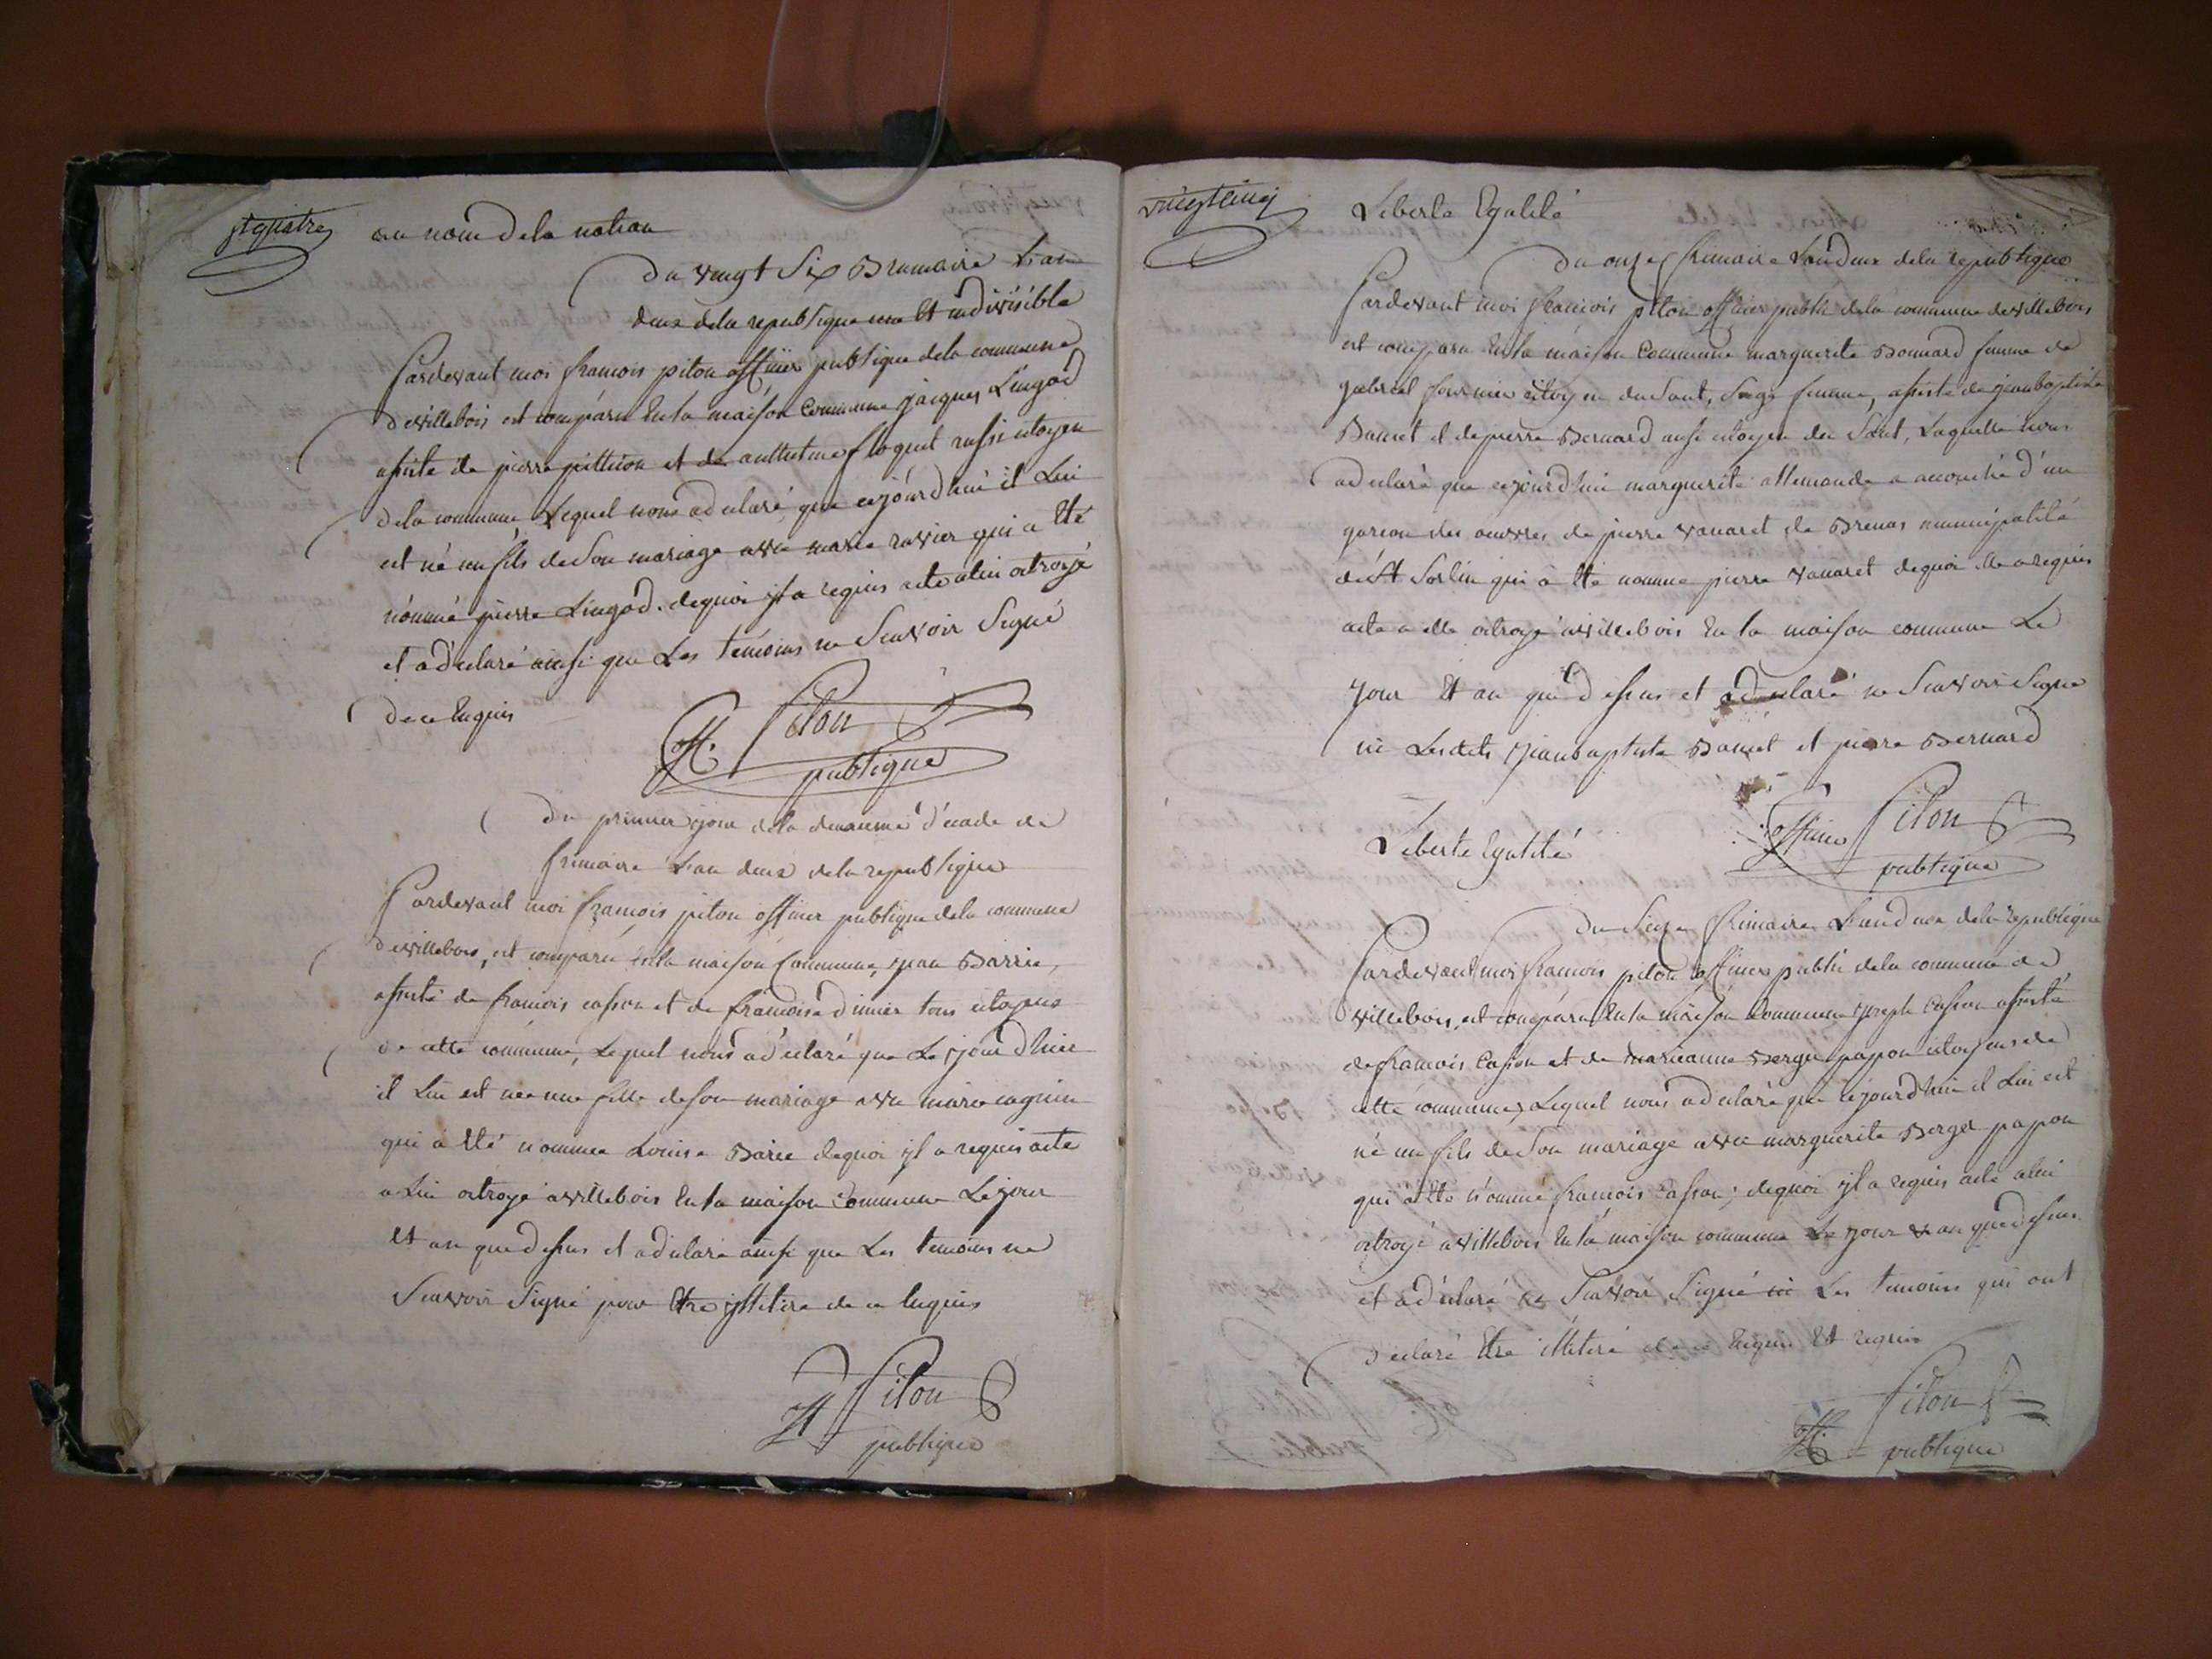 au nom de la nation
du vingt Six Brumaire L'an
deux dela republique une Et indivisible
Pardevant moi francois piton officier publique dela commune
devillebois est comparu En la maison Commune jacques Lingod
assisté de pierre et de aussi citoyen
dela commune Lequel nous adeclaré que cejourdhui il Lui
est né un fils deSon mariage avec marie ravier qui a Eté
nommé pierre Lingod. dequoi yl a requis acte alui octroyé
et adeclaré ainsi que Les temoins ne Scavoir Signé
de ce Enquis
Off. Piton
publique
du primier jour dela deuxieme décade de
frimaire L'an deux dela republique
Pardevant moi francois piton officier publique dela commune
devillebois, est comparu Enla maison Commune, jean Barrie,
assisté de francois casson et de francoise dimier tous citoyens
de cette commune, Lequel nous adéclaré que Lejourdhier
il Lui est née une fille deson mariage avec marie cagnin
qui a Eté nommée Louise Barie dequoi yl a requis acte
a Lui octroyé avillebois En la maison Commune Le jour
Et an que dessus et adeclaré ainsi que Les temoins ne
Scavoir Signé pour Etre yllitéré de ce Enquis
Off Piton
publique
vingtcinq
Liberté Egalité
Du onze frimaire L'an deux dela republique
Pardevant moi francois piton officier public dela commune devillebois
est comparu En la maison Commune marguerite Bonnard femme de
gabriel fournier citoyen du Saut, Sage femme, assisté de jeanbaptiste
Bamet et de pierre Bernard aussi citoyen du Saut, Laquelle nous
adeclaré que cejourdhui marguerite allemande a accouché d'un
garcon des oeuvres de pierre vanaret de Brenas municipalité
de St Sorlin qui à Eté nommé pierre vanaret dequoi Elle a requis
acte a elle octroyé avillebois En la maison commune Le
jour Et an que dessus et adeclaré ne Scavoir Signé
ni Lesdits jeanbaptiste Bamet et pierre Bernard
Officier Piton
publique
Liberté Egalité
Du Seize frimaire L'an deux dela republique
Pardevant moi francois piton officier public dela commune de
villebois, est comparu En la maison Commune joseph Casson assisté
de francois Casson et de marieanne Berger papon citoyens de
cette commune, Lequel nous adeclaré que cejourdhui il Lui est
né un fils deSon mariage avec marguerite Berger papon
qui à Eté nommé francois Casson; dequoi yl a requis acte alui
octroyé avillebois En la maison commune Le jour & an que dessus
et adéclaré ne Scavoir Signé ni Les temoins qui ont
Déclaré Etre illitéré de ce Enquis Et requis
Off. Piton
publique